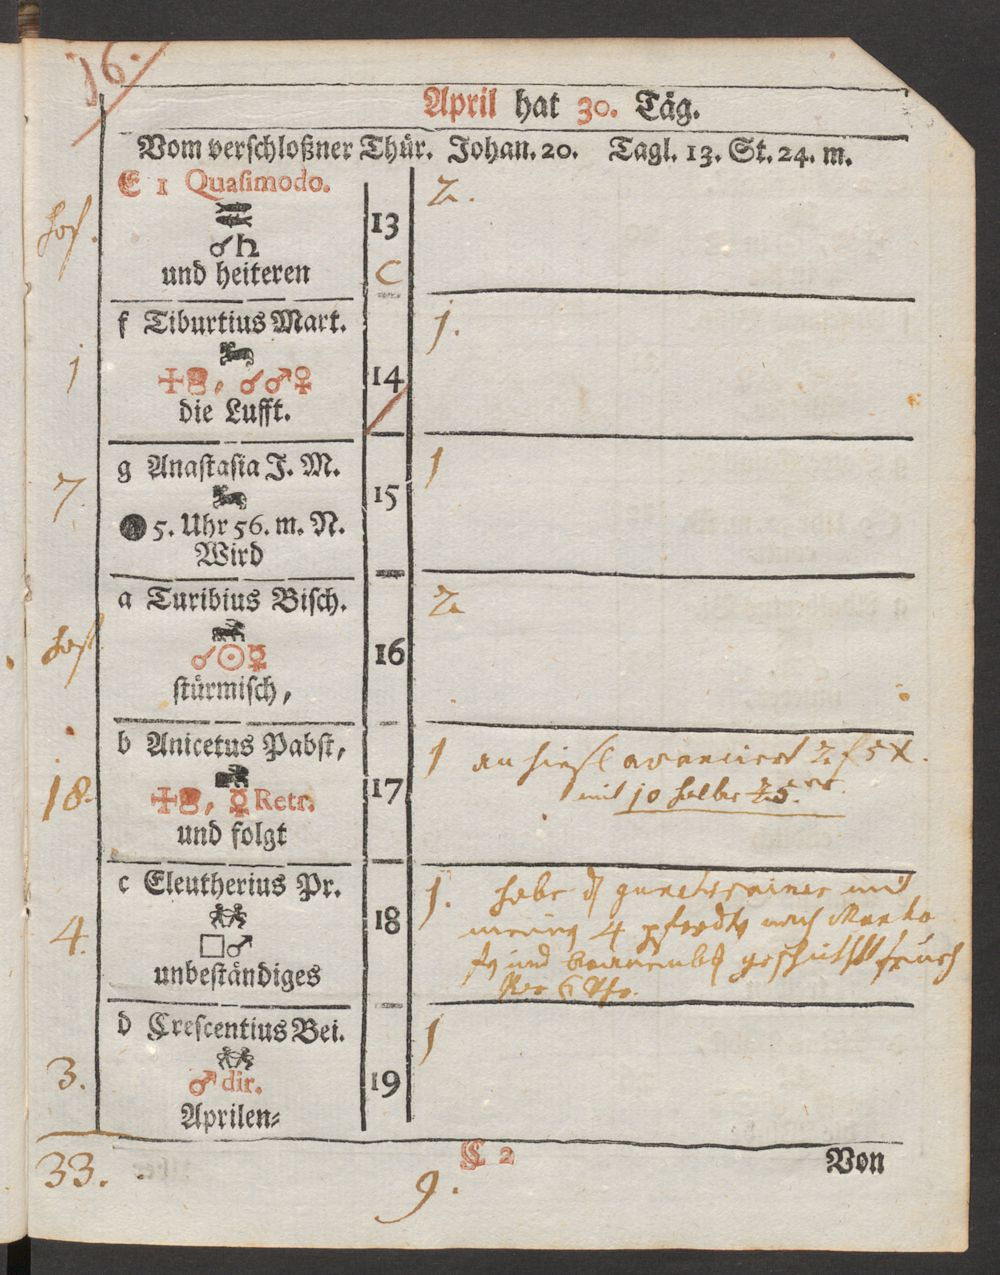 16.
April hat 30. Täg.
Vom verschloßner Thür. Johan. 20. Tagl. 13. St. 24. m.
E 1 Quasimodo.
♂♄
und heiteren
13
C
2.
f Tiburtius Mart.
1
☌♂♀
die Lufft.
14
1.
g Anastasia J. M.
7.
5. Uhr 56. m. N.
Wird
15
1
a Turibius Bisch.
☌☉☿
stürmisch,
16
2
b Anicetus Pabst,
18.
☿ Retr.
und folgt
17
1 2 f 5 X.
mit 10 halbe
c Eleutherius Pr.
4.
□♂
unbeständiges
18
1. habe
4 pferdt nach
und
d Crescentius Bei.
3.
♂ dir.
Aprilen-
19
1
33.
C 2
Von
9.